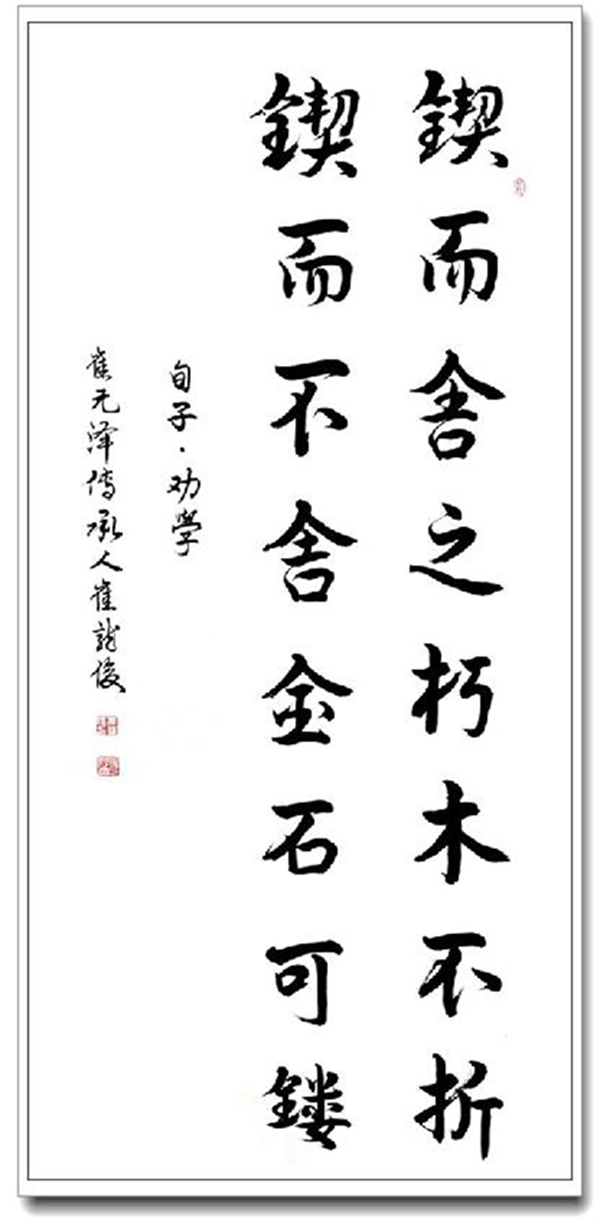 锲而舍之朽木不折
锲而不舍金石可镂
旬子·劝学
崔元泽传承人崔龙俊